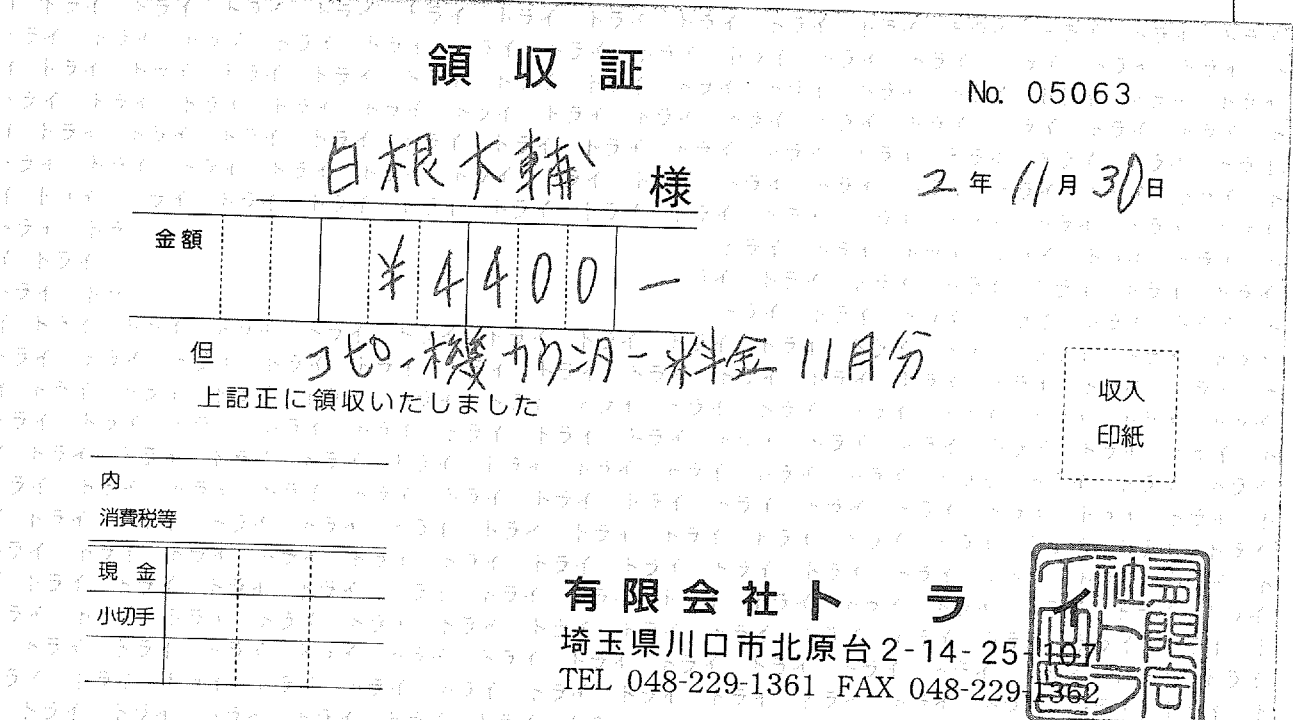 領収証
No. 05063
白根大輔 様
2年11月30日
金額 ¥4400−
但 コピー機カウンター料金 11月分
上記正に領収いたしました
収入
印紙
内
消費税等
現金
小切手
有限会社トライ
埼玉県川口市北原台2-14-25-107
TEL 048-229-1361 FAX 048-229-1362
有限会社トライ